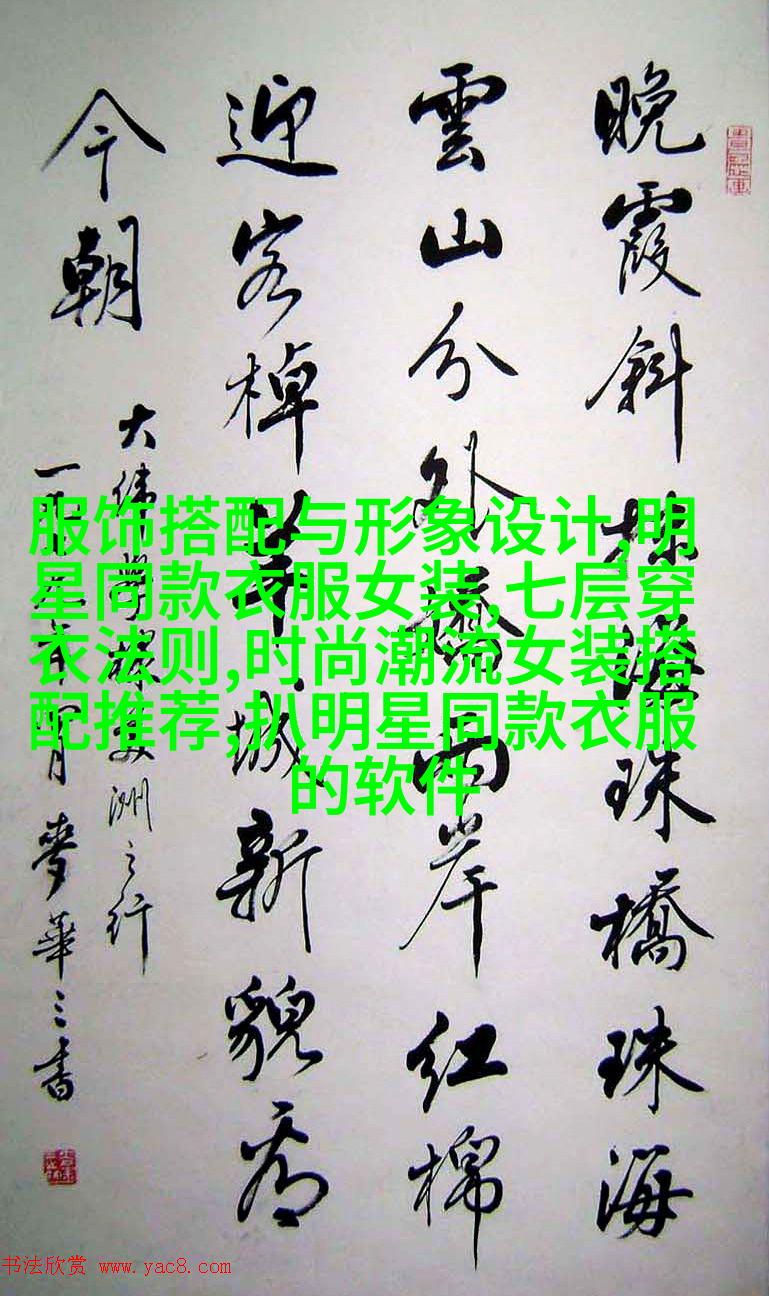 服饰搭配与形象设计,明
星同款衣服女装,七层穿
衣法则,时尚潮流女装搭
配推荐,扒明星同款衣服
的软件
晚霞斜抹海珠橋珠海
雲山分外嬌兩岸紅棉
迎客棹羊城新貌看
今朝
大 洲之行
一 年 月麥華三書
书法欣赏 www.yac8.com